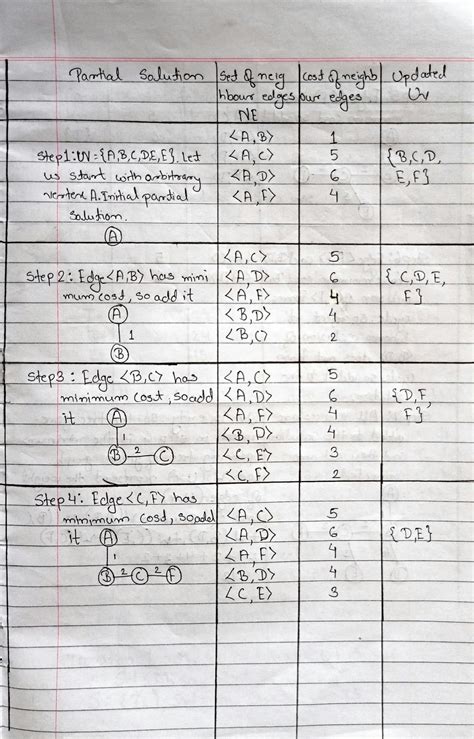 Partial Solution Set of neig Cost of neighb Updated
hbour edges our edges. Uv
NE
<A,B> 1
Step1:UV={A,B,C,D,E,E}. Let <A,C> 5 {B,C,D,
us start with arbitrary <A,D> 6 E,F}
vertex A. Initial partial <A,F> 4
Solution.
A
<A,C> 5
Step 2: Edge<A,B> has mini <A,D> 6 {C,D,E,
mum cost, so add it <A,F> 4 F}
A <B,D> 4
1 <B,C> 2
B
Step3: Edge <B,C> has <A,C> 5
minimum cost, so add <A,D> 6 {D,F,
it A <A,F> 4 F}
1 <B,D> 4
B 2 C <C,E> 3
<C,F> 2
Step4: Edge<C,F> has
minimum cost, so add <A,C> 5
it A <A,D> 6 {D,E}
1 <A,F> 4
B 2 C 2 F <B,D> 4
<C,E> 3